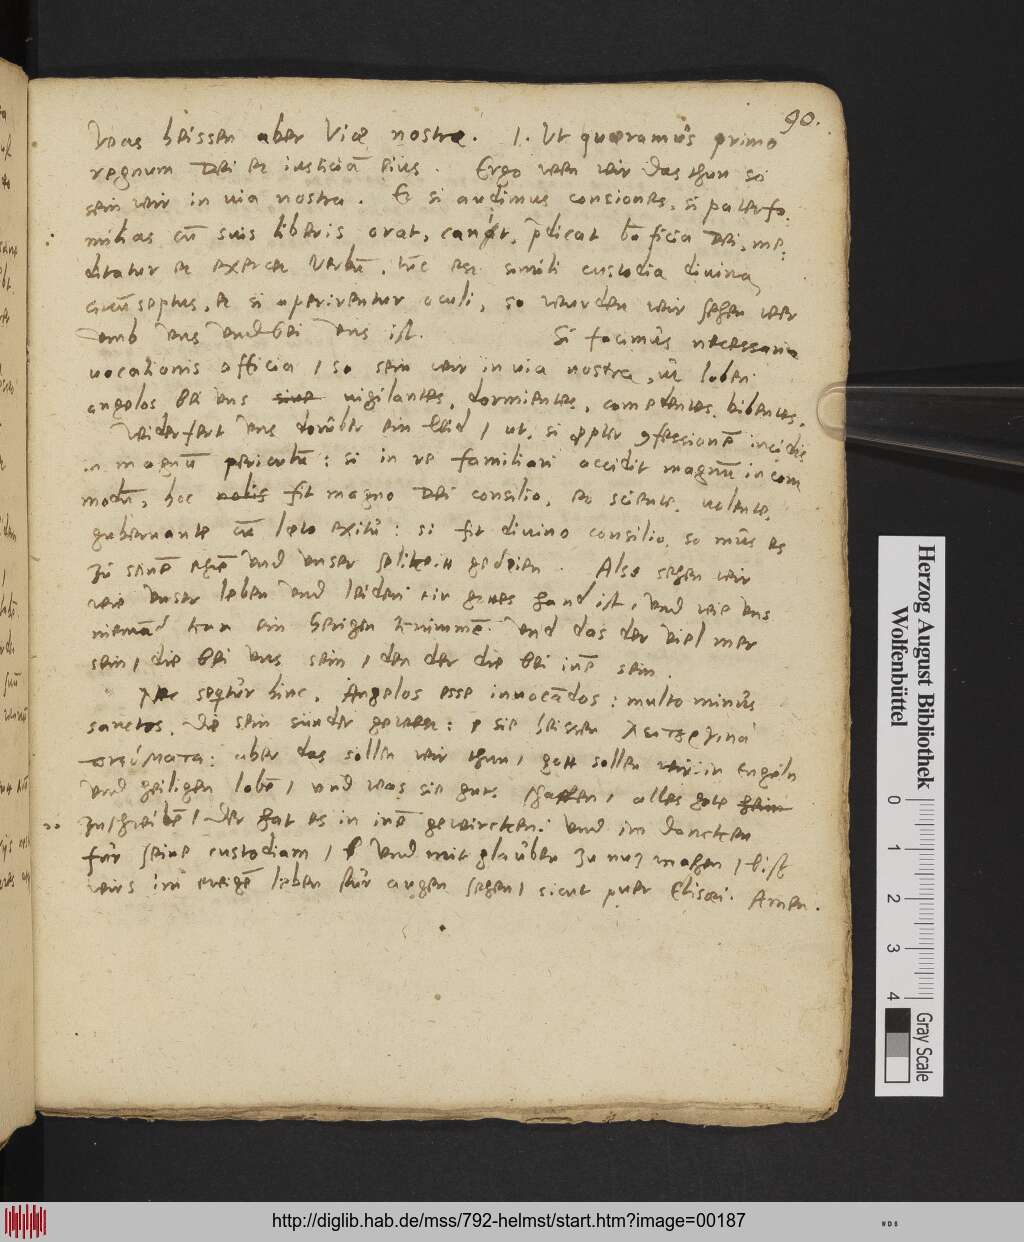 90.
Was heissen aber Viæ nostræ. 1. Ut quæramus primo
regnum Dei et iusticiā eius. Ergo wen wir das thun so
sein wir in uia nostra. Et si audimus conciones, si paterfa-
milias cū suis liberis orat, canit, p̄dicat b̄ficia Dei, me-
ditatur et exercet verbū, tūc est simili custodia diuina
circūseptus, et si aperirentur oculi, so wurden wir sehen wer
umb uns und bei uns ist. Si facimus necessaria
uocationis officia / so sein wir in uia nostra, ut
angelos bei uns siue uigilantes, dormientes, comedentes, bibentes.
Widerfert uns darüber ein leid / ut, si ꝓpter ꝯfessionē incidis
in magnū periculū: si in re familiari accidit magnū incom
modū, hoc fit magno Dei consilio, eo sciente, uolente,
gubernante cū læto exitu: si fit diuino consilio, so mus es
zu seinē ehrē und unser selikeit gedeien. Also sehen wir
wie unser leben und leiden in gottes hand ist, und wie uns
niemād kan ein herigen krimmē. und das der viel mer
sein / die bei uns sein / den der die bei inē sein.
seqtur hinc, Angelos esse inuocādos: multo minus
sanctos. Die sein sunder gewesen: sie heissen
aber das sollen wir thun / gott sollen wir in engeln
und heiligen lobē / und was sie guts schaffen / alles gote
zuschreibē / Der hat es in inē gewircken. und im dancken
für seine custodiam / und mit glauben zu nuz machen / bisz
wirs im ewigē leben für augen sehen / sicut puer Elisæi. Amen.
Herzog August Bibliothek
Wolfenbüttel
0 1 2 3 4
Gray Scale
http://diglib.hab.de/mss/792-helmst/start.htm?image=00187